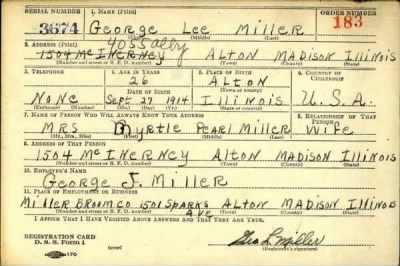 SERIAL NUMBER 1. NAME (Print) ORDER NUMBER
3674 George Lee Miller 183
(First) (Middle) (Last)
4055 Alby
2. ADDRESS (Print)
1504 McInerney Alton Madison Illinois
(Number and street or R. F. D. number) (Town) (County) (State)
3. TELEPHONE 4. AGE IN YEARS 5. PLACE OF BIRTH 6. COUNTRY OF CITIZENSHIP
26 Alton
DATE OF BIRTH (Town or county)
None Sept 27 1914 Illinois U.S.A.
(Mo.) (Day) (Yr.) (State or country)
7. NAME OF PERSON WHO WILL ALWAYS KNOW YOUR ADDRESS 8. RELATIONSHIP OF THAT PERSON
Mrs Myrtle Pearl Miller Wife
(Mr., Mrs., Miss) (First) (Middle) (Last)
9. ADDRESS OF THAT PERSON
1504 McInerney Alton Madison Illinois
(Number and street or R. F. D. number) (Town) (County) (State)
10. EMPLOYER'S NAME
George J. Miller
11. PLACE OF EMPLOYMENT OR BUSINESS
Miller Broom Co 1501 Sparks Ave Alton Madison Illinois
(Number and street or R. F. D. number) (Town) (County) (State)
I AFFIRM THAT I HAVE VERIFIED ABOVE ANSWERS AND THAT THEY ARE TRUE.
REGISTRATION CARD
D. S. S. Form 1 Geo L. Miller
(over) (Registrant's signature)